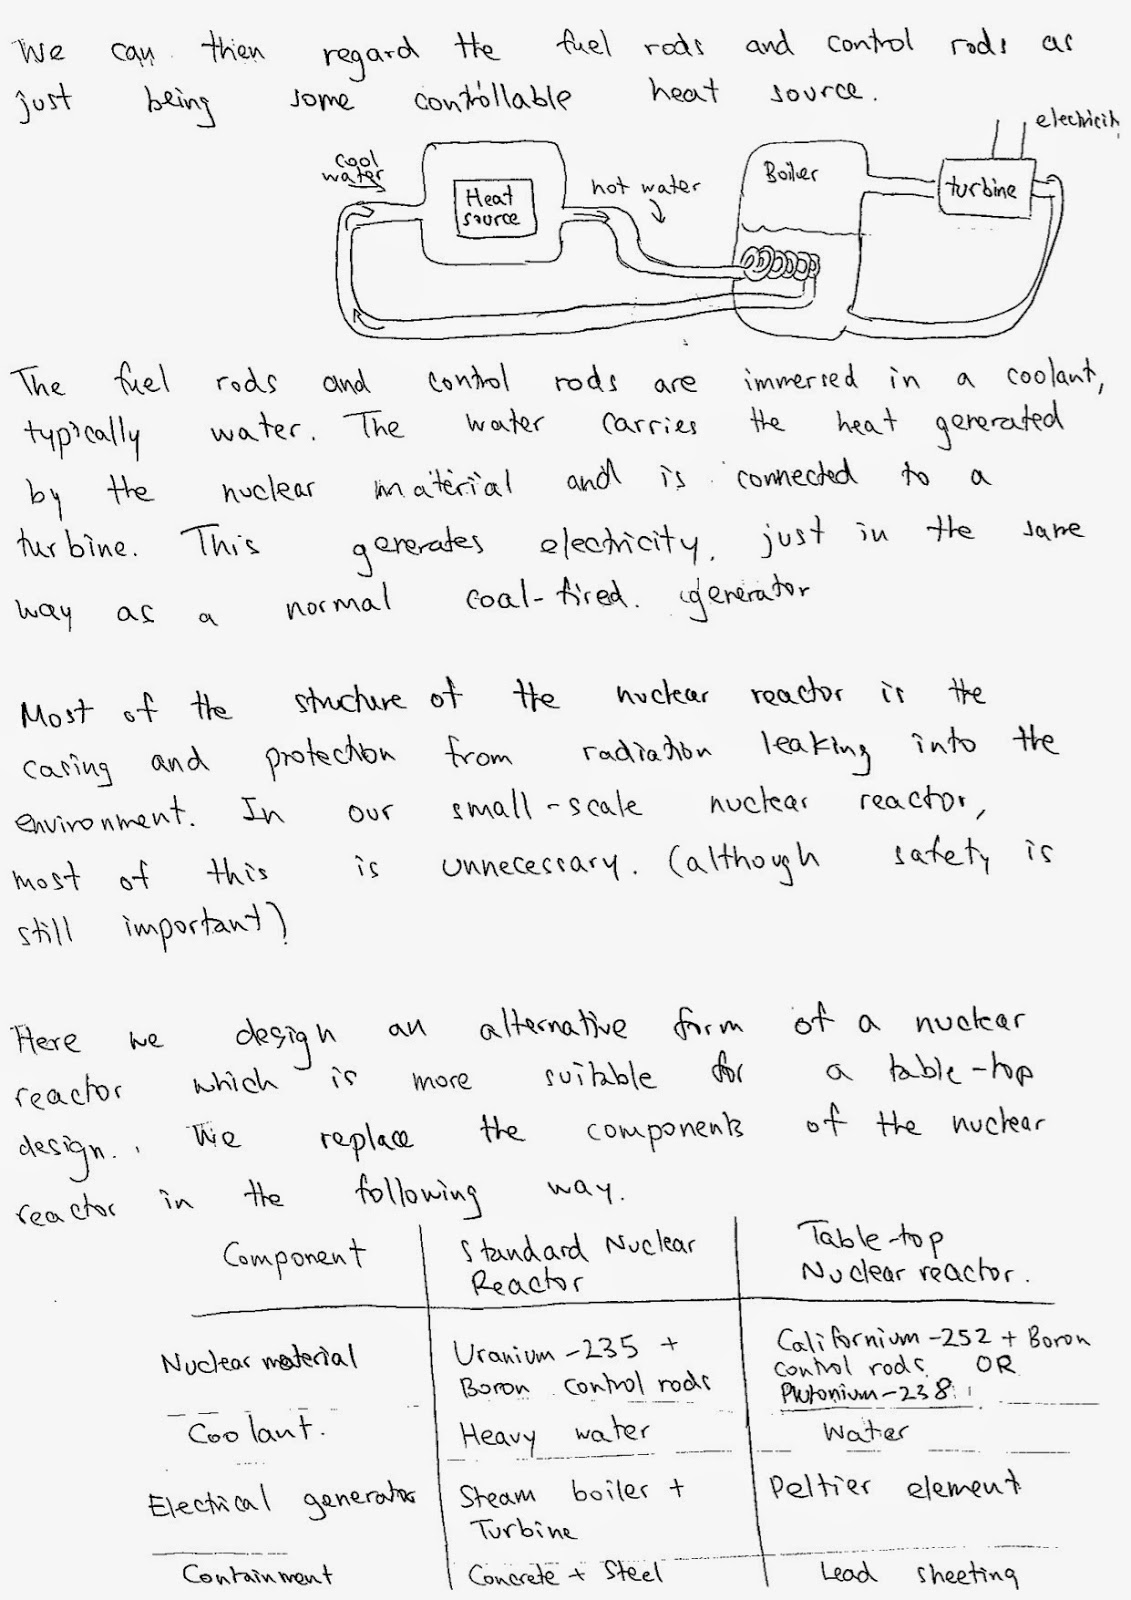 We can then regard the fuel rods and control rods as
just being some controllable heat source.
electricity
cool
water
Heat
source
hot water
Boiler
turbine
The fuel rods and control rods are immersed in a coolant,
typically water. The water carries the heat generated
by the nuclear material and is connected to a
turbine. This generates electricity, just in the same
way as a normal coal-fired. generator
Most of the structure of the nuclear reactor is the
casing and protection from radiation leaking into the
environment. In our small-scale nuclear reactor,
most of this is unnecessary. (although safety is
still important)
Here we design an alternative form of a nuclear
reactor which is more suitable for a table-top
design. We replace the components of the nuclear
reactor in the following way.
Component
Standard Nuclear
Reactor
Table-top
Nuclear reactor.
Nuclear material
Uranium-235 +
Boron control rods
Californium-252 + Boron
control rods OR
Plutonium-238
Coolant.
Heavy water
Water
Electical generator
Steam boiler +
Turbine
Peltier element
Containment
Concrete + Steel
Lead sheeting